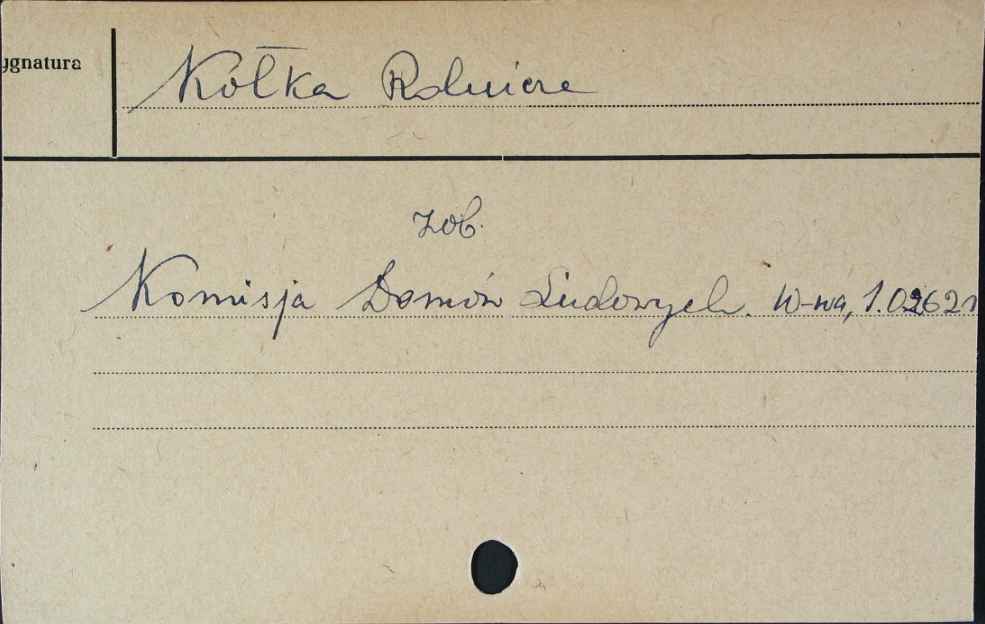 ygnatura
Kółka Rolnicze
zob.
Komisja Domów Ludowych. W-wa,